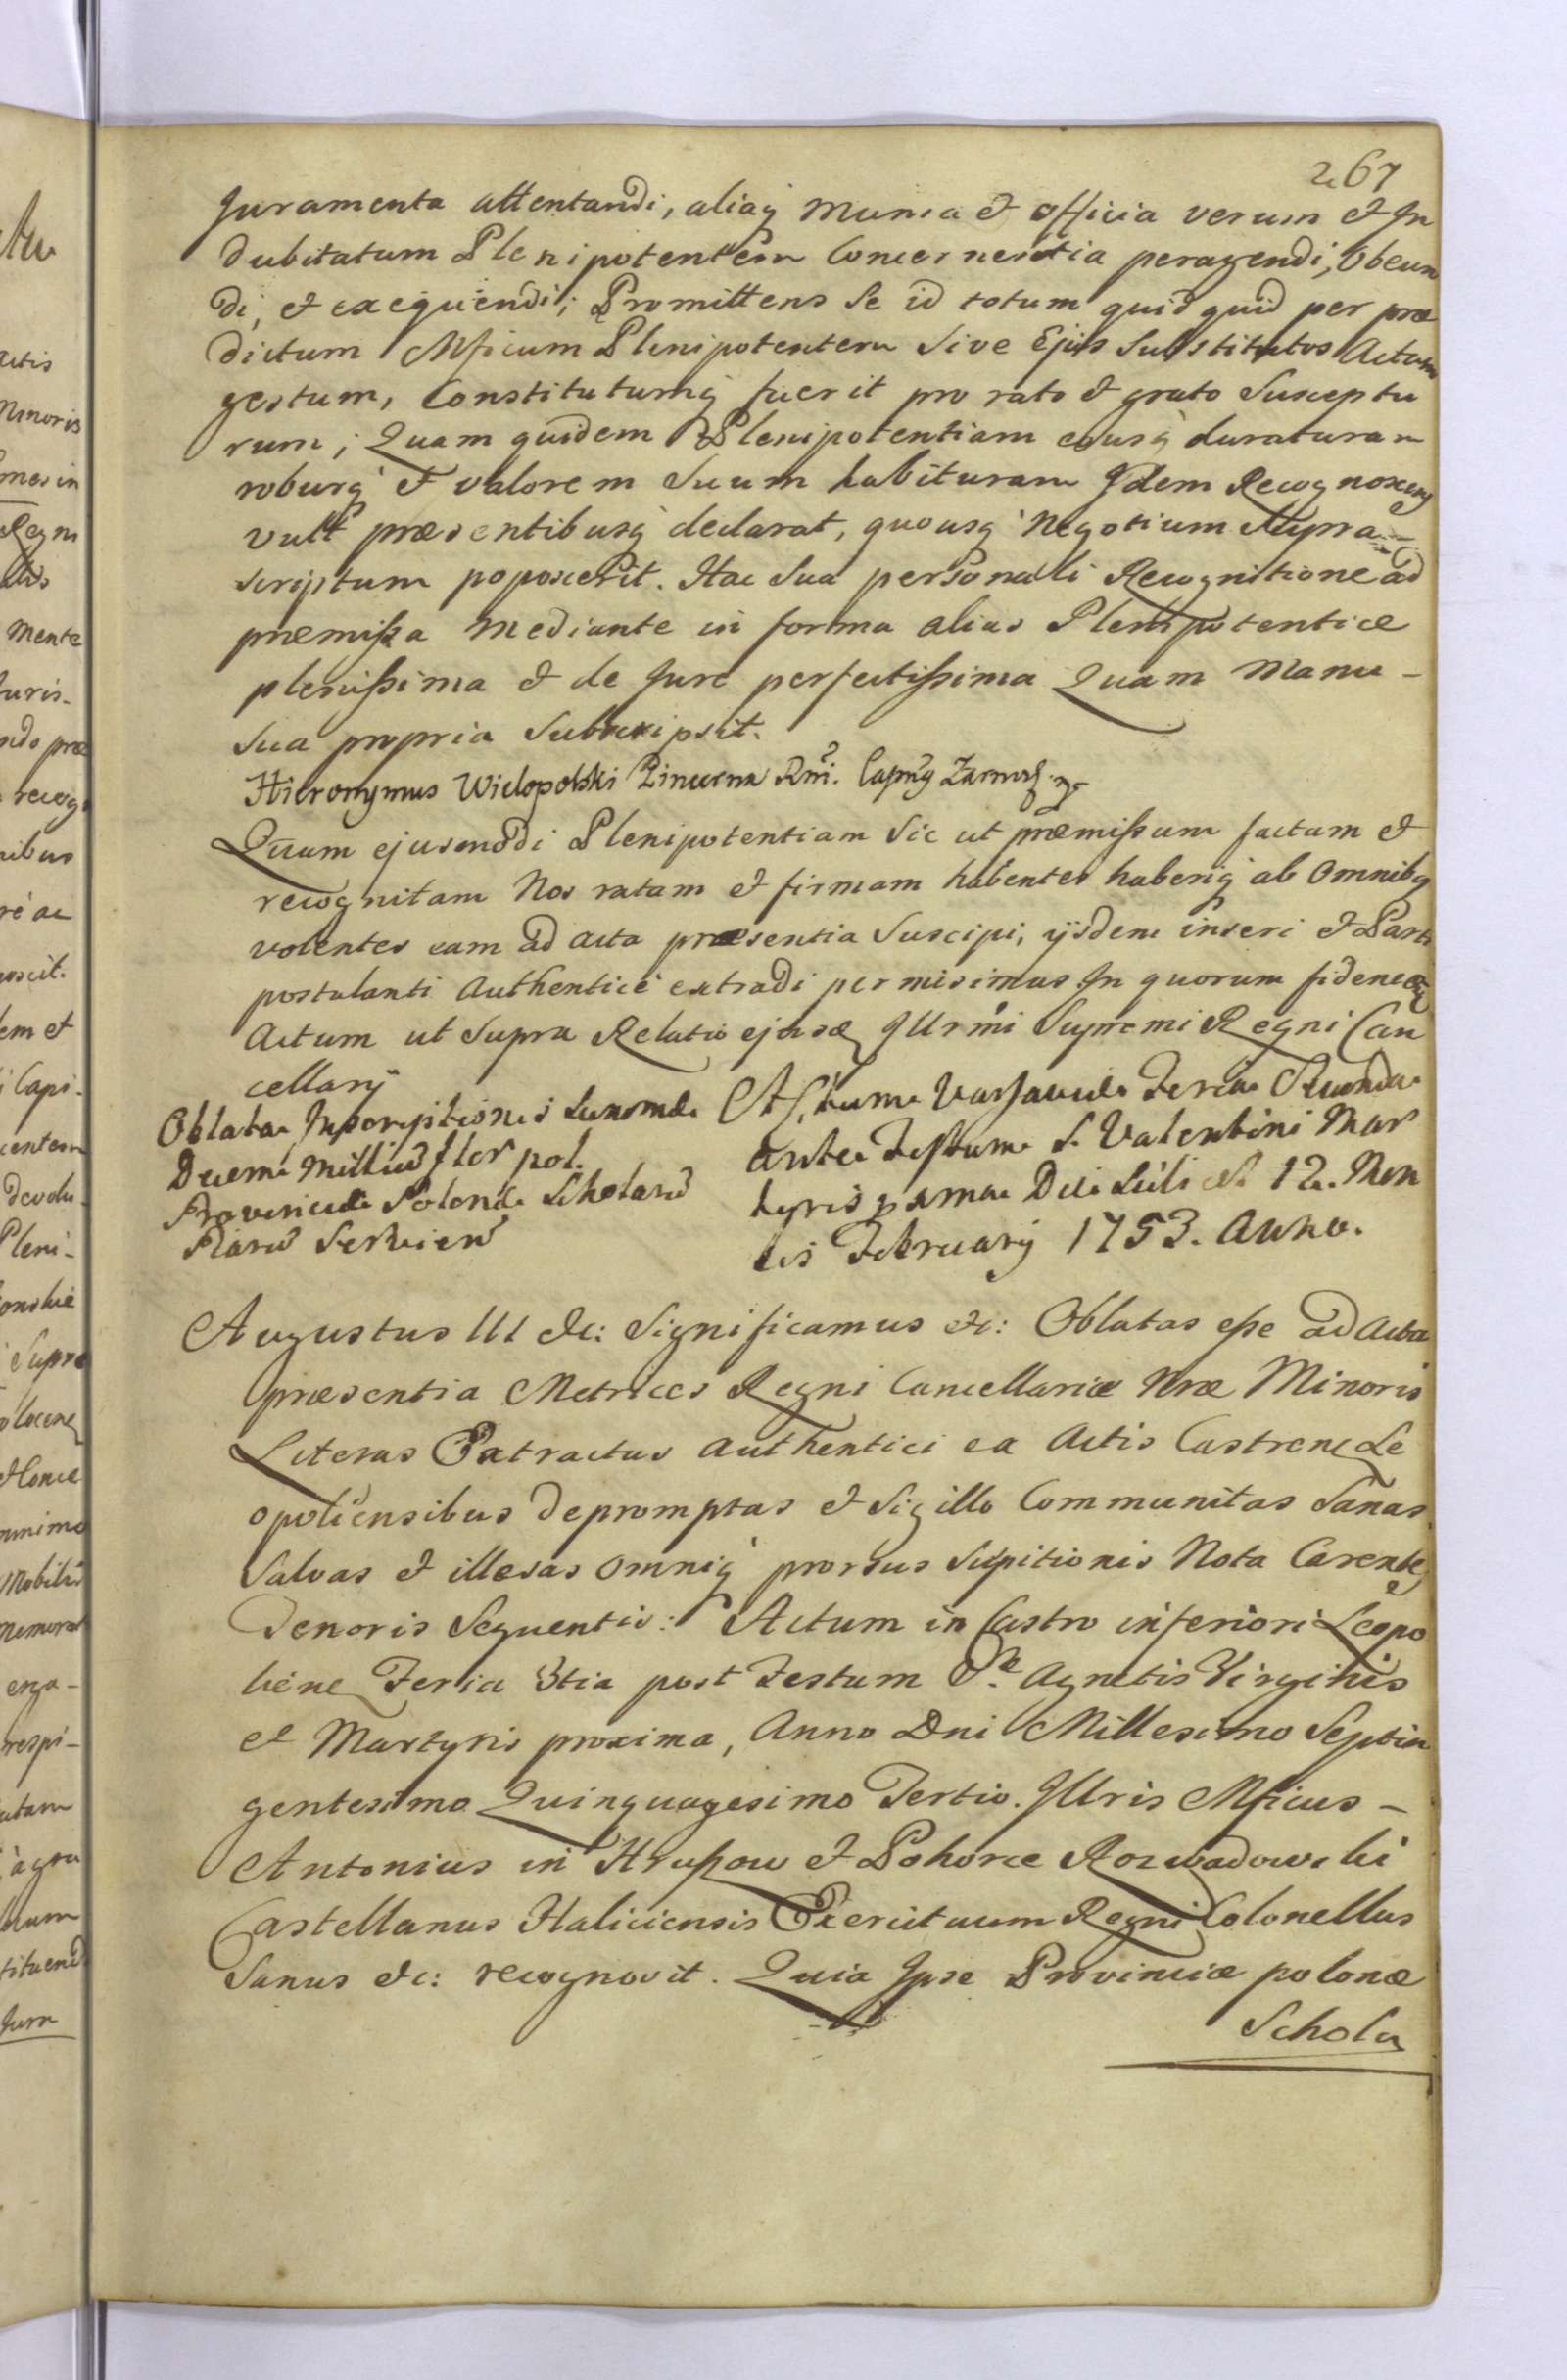 267
Juramenta attentandi, aliaq munia et officia verum et In
dubitatum Plenipotentem Concernentia peragendi, Obeun
di, et exequendi; Promittens Se id totum quid quid per præ
dictum Mficum Plenipotentem Sive Ejus Substitutos Actum
gestum, Constitutumq fuerit pro rato et grato Susceptu
rum; Quam quidem Plenipotentiam eousq duraturam
roburq et valorem Suum habituram Idem Recognoscens
vult præsentibusq declarat, quousq Negotium Supra
scriptum poposcerit. Hac Sua personali Recognitione ad
præmissa Mediante in forma alias Plenipotentiæ
plenissima et de Jure perfectissima Quam Manu -
Sua propria Subscripsit.
Hieronymus Wielopolski Pincerna Rni. Capng Zarnov.
Quam ejusmodi Plenipotentiam Sic ut præmissum factam et
recognitam Nos ratam et firmam habentes haberiq ab Omnibq
volentes eam ad acta præsentia Suscipi, ijsdem inseri et Parti
postulanti Authenticè extradi permisimus In quorum fidem etc
Actum ut Supra Relatio ejusd Illrmi Supremi Regni Can
cellarij
Oblata Inscriptionis Summæ
Decem Milliū flor pol.
Provinciæ Polonæ Scholarū
Piarū Servien
Actum Varsaviæ Feria Secunda
ante Festum S. Valentini Mar
tyris pxima Die Scili d. 12. Men
sis February 1753. Anno.
Augustus III etc: Significamus etc: Oblatas esse ad Acta
præsentia Metrices Regni Cancellariæ Nræ Minoris
Literas Extractus Authentici ex Actis Castren Le
opoliensibus depromptas et Sigillo Communitas Sanas
Salvas et illesas Omniq prorsus Suspitionis Nota Carentes
Tenoris Sequentis: Actum in Castro inferiori Leopo
lien Feria 3tia post Festum S. Agnetis Virginis
et Martyris proxima, Anno Dni Millesimo Septin
gentesimo Quinquagesimo Tertio. Illris Mficus -
Antonius in Hruszow et Pohorce Rozwadowski
Castellanus Haliciensis Exercituum Regni Colonellus
Sanus etc: recognovit. Quia Ipse Provinciæ polonæ
Schola